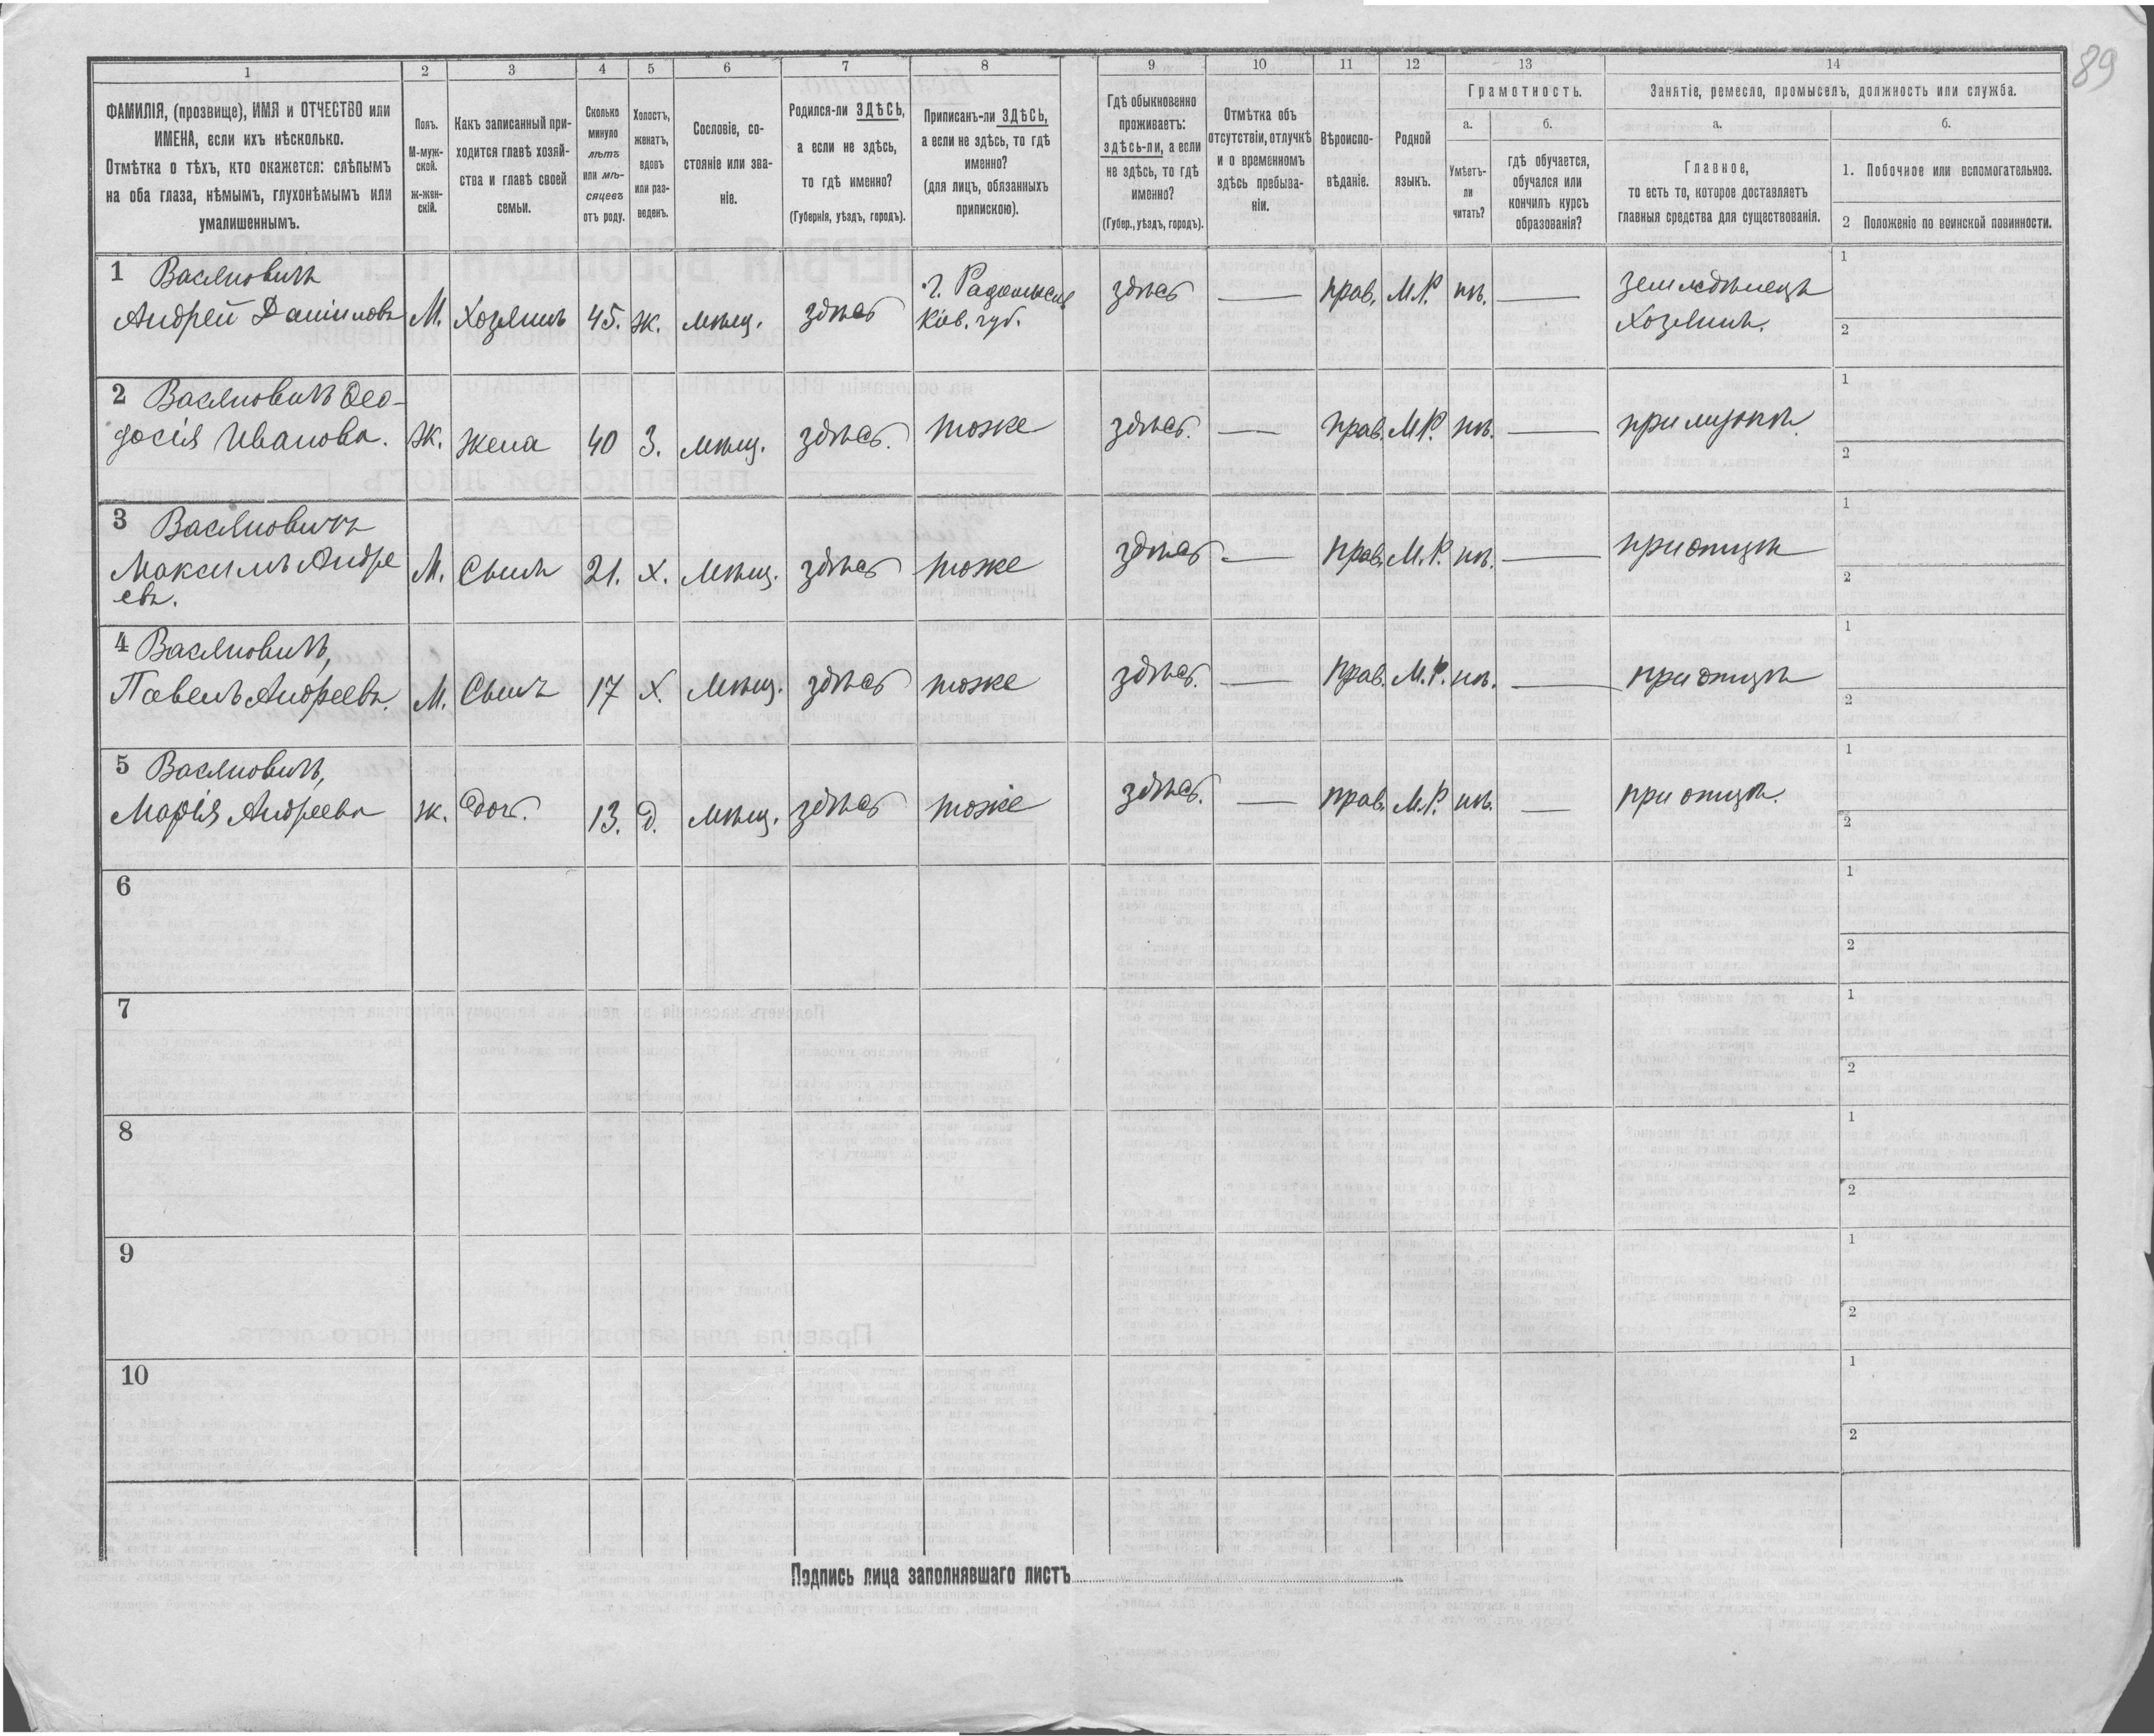 89
1 2 3 4 5 6 7 8 9 10 11 12 13 14
ФАМИЛІЯ, (прозвище), ИМЯ и ОТЧЕСТВО или
ИМЕНА, если ихъ нѣсколько.
Отмѣтка о тѣхъ, кто окажется: слѣпымъ
на оба глаза, нѣмымъ, глухонѣмымъ или
умалишеннымъ.
Полъ.
М-муж-
ской.
ж-жен-
скій.
Какъ записанный при-
ходится главѣ хозяй-
ства и главѣ своей
семьи.
Сколько
минуло
лѣтъ
или мѣ-
сяцевъ
отъ роду.
Холостъ,
женатъ,
вдовъ
или раз-
веденъ.
Сословіе, со-
стояніе или зва-
ніе.
Родился-ли ЗДѢСЬ,
а если не здѣсь,
то гдѣ именно?
(Губернія, уѣздъ, городъ).
Приписанъ-ли ЗДѢСЬ,
а если не здѣсь, то гдѣ
именно?
(для лицъ, обязанныхъ
припискою).
Гдѣ обыкновенно
проживаетъ:
здѣсь-ли, а если
не здѣсь, то гдѣ
именно?
(Губер., уѣздъ, городъ).
Отмѣтка объ
отсутствіи, отлучкѣ
и о временномъ
здѣсь пребыва-
ніи.
Вѣроиспо-
вѣданіе.
Родной
языкъ.
Грамотность.
а.
Умѣетъ-
ли
читать?
б.
гдѣ обучается,
обучался или
кончилъ курсъ
образованія?
Занятіе, ремесло, промыселъ, должность или служба.
а.
Главное,
то есть то, которое доставляетъ
главныя средства для существованія.
б.
1. Побочное или вспомогательное.
2 Положеніе по воинской повинности.
1 Васяновичъ
Андрей Даниловъ М. Хозяинъ 45. ж. мѣщ. здѣсь г. Радомысль
Кіев. губ. здѣсь — прав. М.Р. нѣ. — земледѣлецъ
Хозяинъ.
1
2
2 Васяновичъ Ѳео-
досія Иванова. Ж. Жена 40 З. мѣщ. здѣсь. тоже здѣсь. — прав. М.Р. нѣ. — при мужѣ.
1
2
3 Васяновичъ
Максимъ Андре
евъ. М. Сынъ 21. Х. Мѣщ. здѣсь тоже здѣсь — прав. М.Р. нѣ. — при отцѣ
1
2
4 Васяновичъ,
Павелъ Андреевъ. М. Сынъ 17 Х. Мѣщ. здѣсь тоже здѣсь. — прав. М.Р. нѣ. — при отцѣ
1
2
5 Васяновичъ,
Марія Андреева ж. Доч. 13. д. Мѣщ. здѣсь тоже здѣсь. — прав. М.Р. нѣ. — при отцѣ.
1
2
6
1
2
7
1
2
8
1
2
9
1
2
10
1
2
Подпись лица заполнявшаго листъ